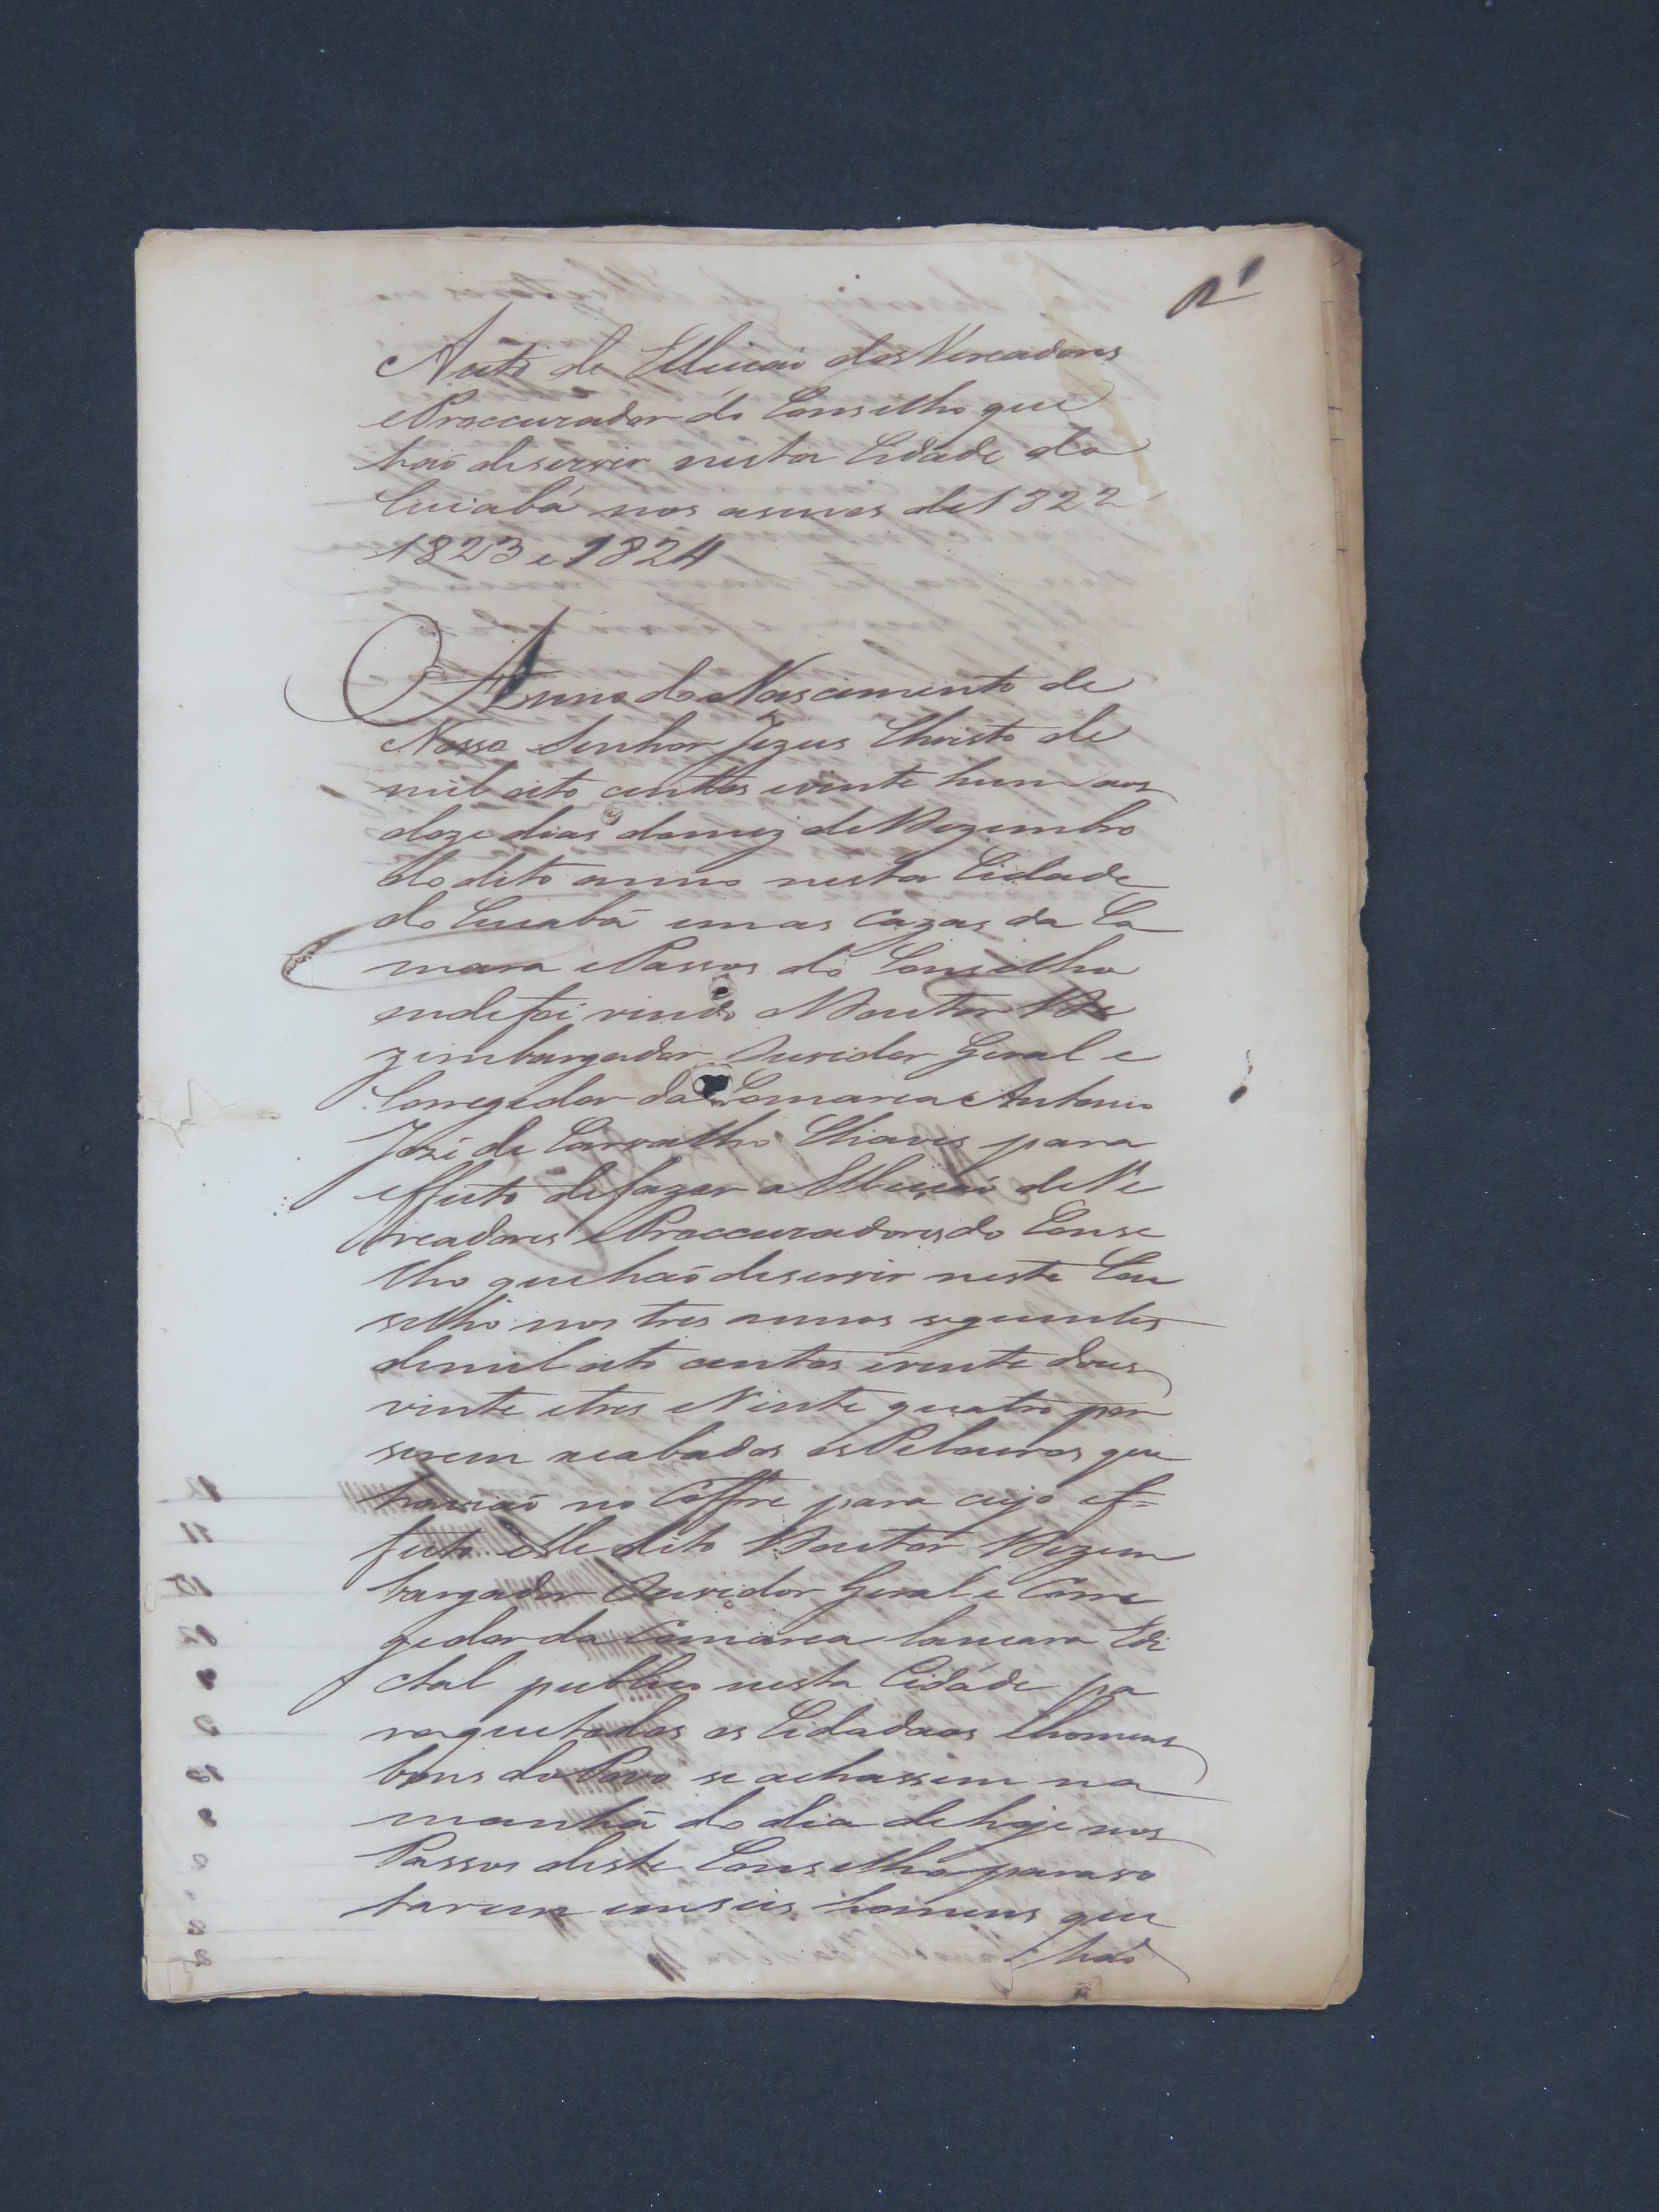 1
Auto de Elleicaõ dos Vereadores
e Proccurador do Conselho que
haõ de servir nesta Cidade do
Cuiabá nos annos de 1822
1823 e 1824
Anno do Nascimento de
Nosso Senhor Jezus Christo de
mil oito centos e vinte hum aos
doze dias do mez de Dezembro
do dito anno nesta Cidade
do Cuiabá em as Cazas da Ca
mara e Passos do Conselho
onde foi vindo o Doutor De
zembargador Ouvidor Geral e
Corregedor da Comarca Antonio
Jozé de Carvalho Chaves para
effeito de fazer a Elleicaõ de Ve
readores e Proccuradores do Conse
lho que haõ de servir neste Con
selho nos tres annos seguintes
de mil oito centos e vinte dous
vinte e tres e Vinte quatro por
serem acabados os Pelouros que
haviaõ no Coffre para cujo ef=
feito elle dito Doutor Dezem
bargador Ouvidor Geral e Corre
gedor da Comarca lancara Edi
ctal publico nesta Cidade pa
ra que todos os Cidadaos e homens
bons do Povo se achassem na
manhã do dia de hoje nos
Passos deste Conselho para vo
tarem em seis homens que